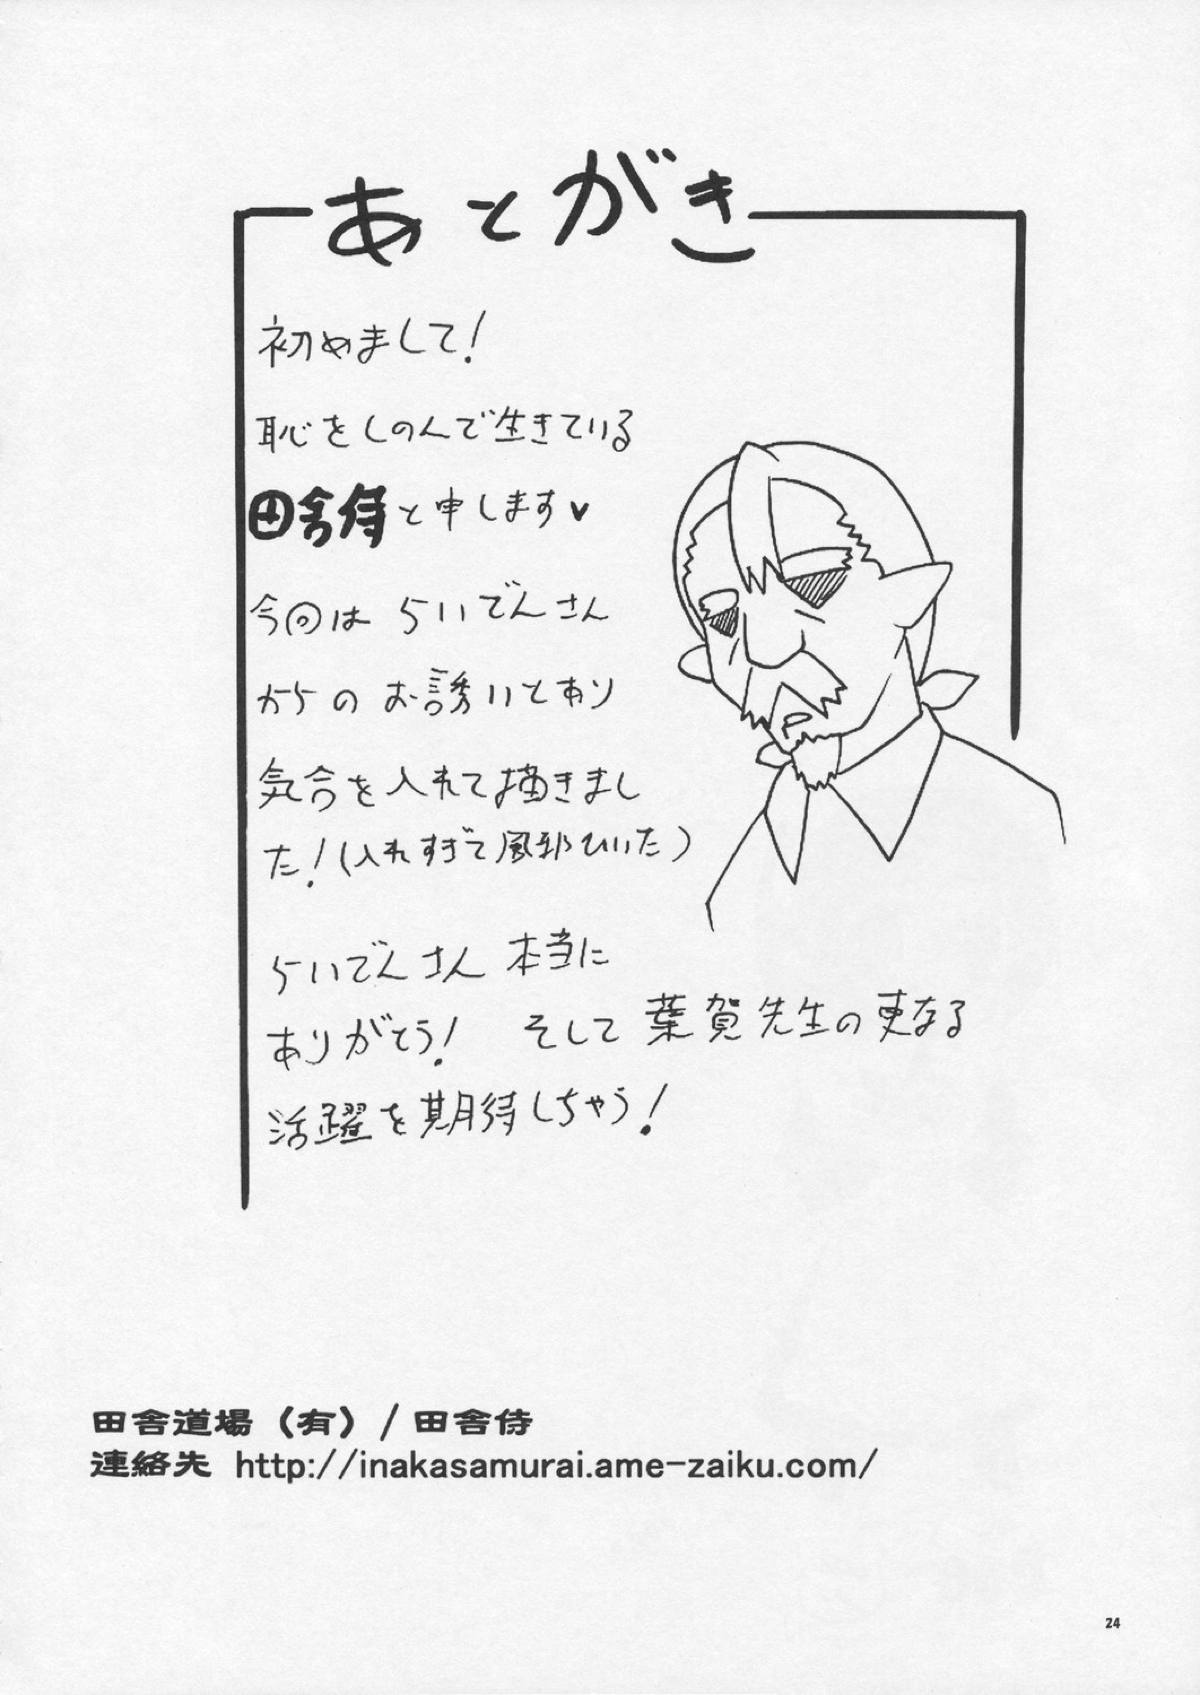 あとがき
初めまして!
恥をしのんで生きている
田舎侍と申します♥
今回は らいでんさん
からの お誘いとあり
気合を入れて描きまし
た!(入れすぎて風邪ひいた)
らいでんさん 本当に
ありがとう! そして 葉賀先生の更なる
活躍を期待しちゃう!
田舎道場（有）/ 田舎侍
連絡先 http://inakasamurai.ame-zaiku.com/
24